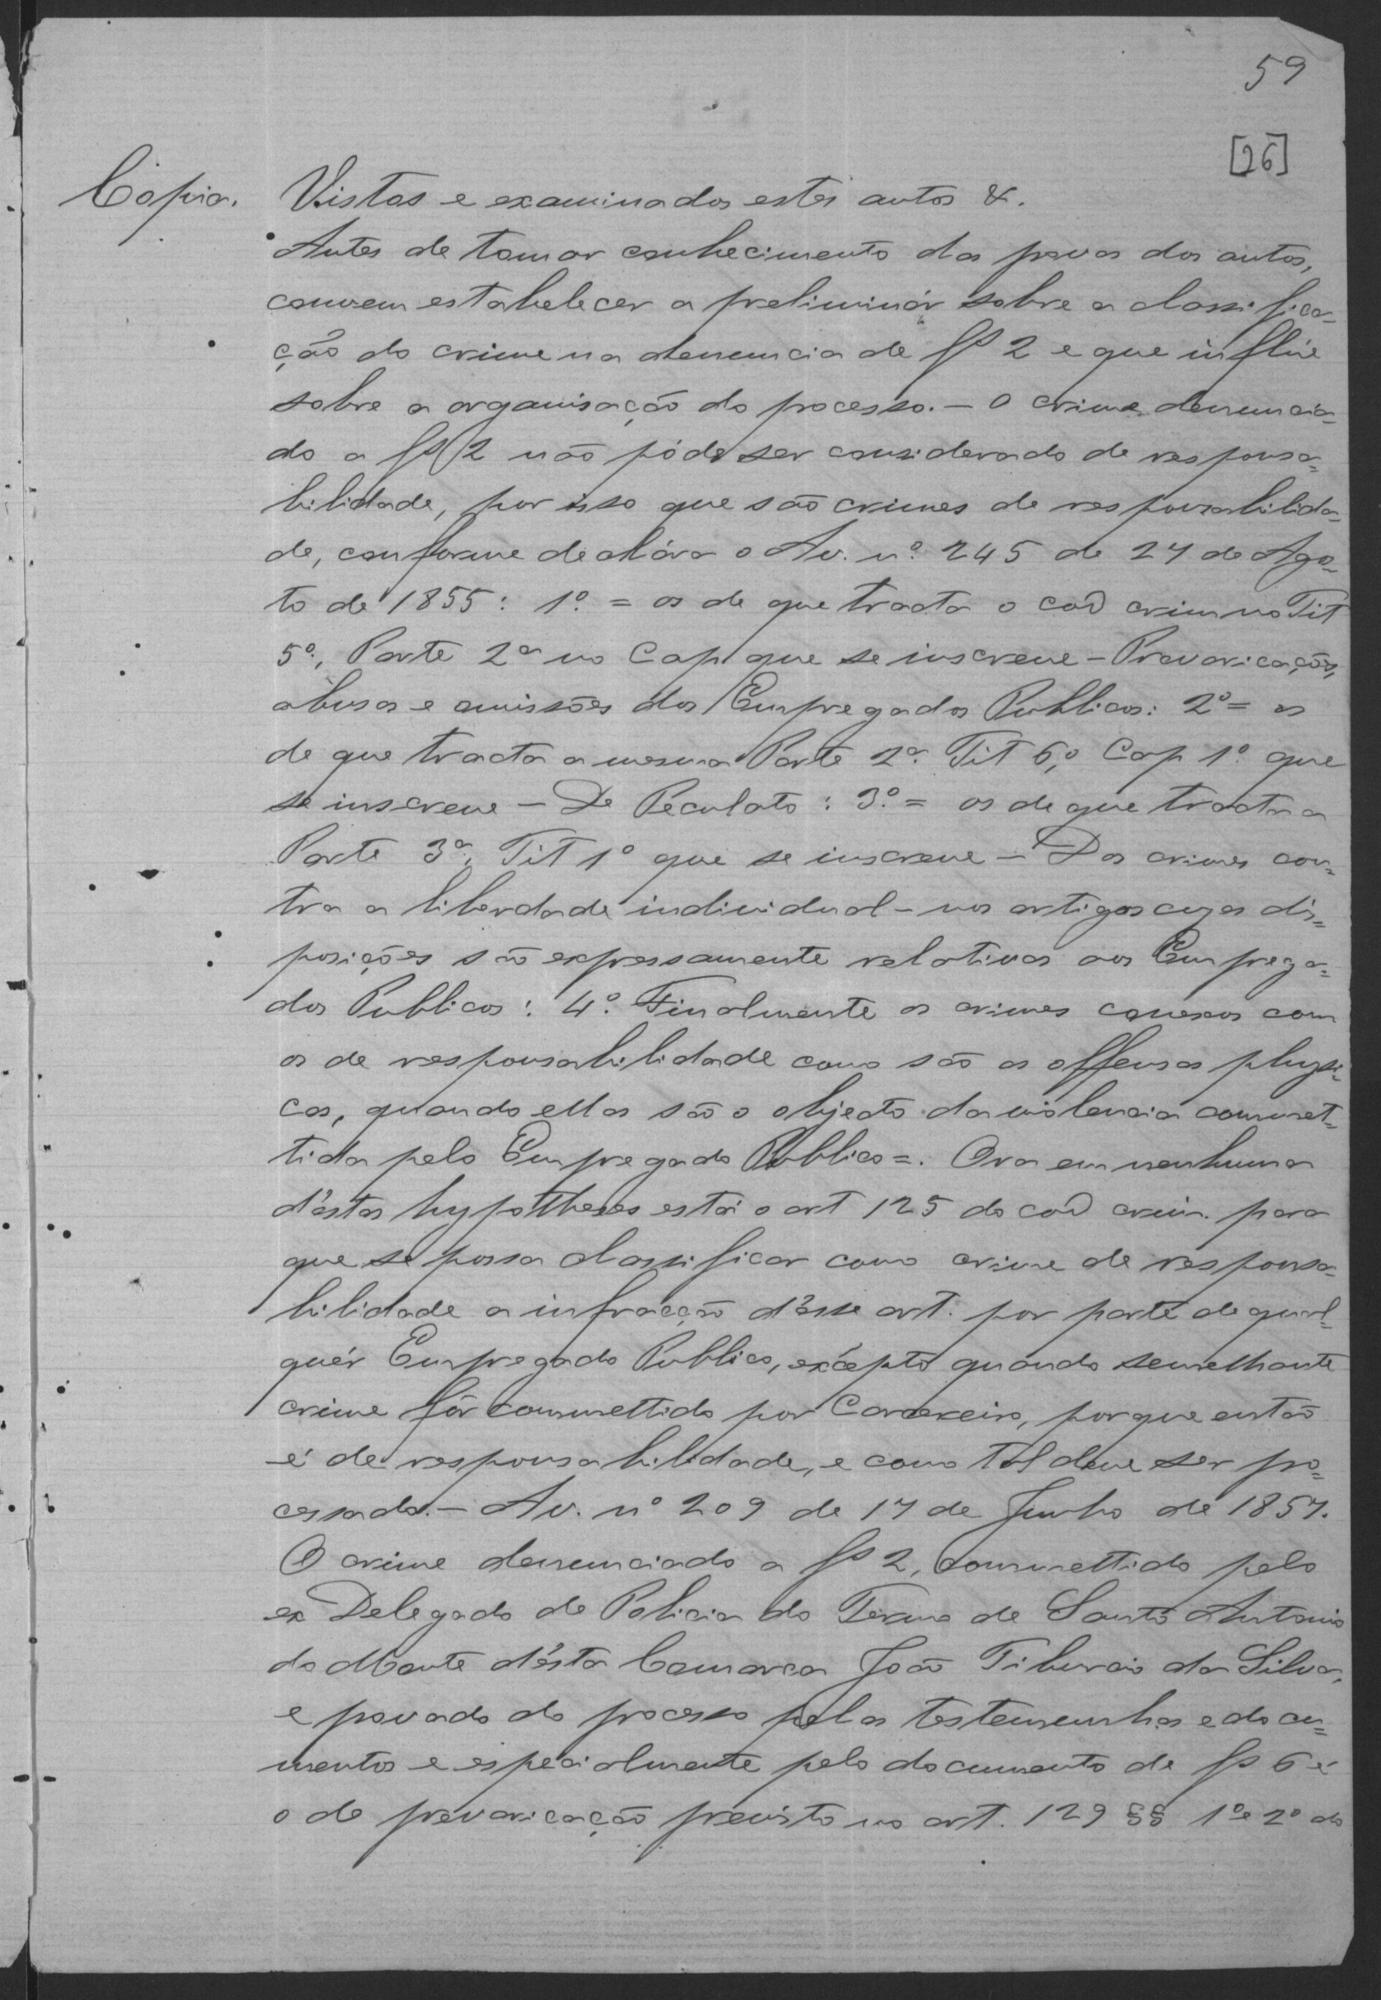 59
[26]
Copia. Vistos e examinados estes autos &.
Antes de tomar conhecimento das provas dos autos,
convem estabelecer a preliminár sobre a classifica-
ção do crime na denuncia de fs 2 e que influe
sobre a organisação do processo. — O crime denuncia-
do a fs 2 não póde ser considerado de responsa-
bilidade, por isso que são crimes de responsabilida-
de, conforme declára o Av. nº 245 de 27 de Agos-
to de 1855: 1º = os de que tracta o cod crim no Tit
5º, Parte 2ª no Cap que se inscreve — Prevaricações,
abusos e omissões dos Empregados Publicos: 2º = os
de que tracta a mesma Parte 2ª Tit 6º, Cap 1º que
se inscreve — De Peculato: 3º = os de que tracta a
Parte 3ª, Tit 1º que se inscreve — Dos crimes con=
tra a liberdade individual — nos artigos cujas dis=
posições são expressamente relativas aos Emprega=
dos Publicos: 4º Finalmente os crimes conexos com
os de responsabilidade como são as offensas physi=
cas, quando ellas são o objecto da violencia commet=
tida pelo Empregado Publico =. Ora em nenhuma
d'éstas hypotheses está o art 125 do cod crim. para
que se possa classificar como crime de responsa=
bilidade a infracção d'ésse art. por parte de qual=
quér Empregado Publico, excépto quando semelhante
crime fôr commettido por Carcereiro, porque então
é de responsabilidade, e como tal deve ser pro=
cessado. — Av. nº 209 de 17 de Junho de 1857.
O crime denunciado a fs 2, commettido pelo
ex Delegado de Policia do Termo de Santo Antonio
do Monte d'ésta Comarca João Tiburcio da Silva,
e provado do processo pelas testemunhas e docu=
mentos e especialmente pelo documento de fs 6 é
o de prevaricação previsto no art. 129 §§ 1º e 2º do